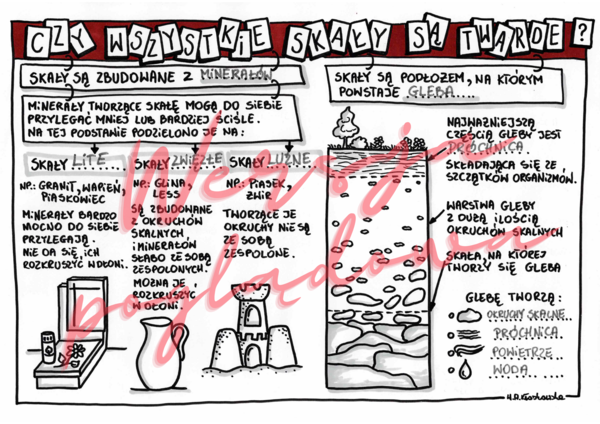 CZY WSZYSTKIE SKAŁY SĄ TWARDE?
SKAŁY SĄ ZBUDOWANE Z MINERAŁÓW
MINERAŁY TWORZĄCE SKAŁĘ MOGĄ DO SIEBIE
PRZYLEGAĆ MNIEJ LUB BARDZIEJ ŚCIŚLE.
NA TEJ PODSTAWIE PODZIELONO JE NA:
SKAŁY LITE
NP.: GRANIT, WAPIEŃ,
PIASKOWIEC
MINERAŁY BARDZO
MOCNO DO SIEBIE
PRZYLEGAJĄ.
NIE DA SIĘ ICH
ROZKRUSZYĆ W DŁONI.
SKAŁY ZWIĘZŁE
NP.: GLINA,
LESS
SĄ ZBUDOWANE
Z OKRUCHÓW
SKALNYCH
I MINERAŁÓW
SŁABO ZE SOBĄ
ZESPOLONYCH.
MOŻNA JE
ROZKRUSZYĆ
W DŁONI.
SKAŁY LUŹNE
NP.: PIASEK,
ŻWIR
TWORZĄCE JE
OKRUCHY NIE SĄ
ZE SOBĄ
ZESPOLONE.
SKAŁY SĄ PODŁOŻEM, NA KTÓRYM
POWSTAJE GLEBA....
NAJWAŻNIEJSZĄ
CZĘŚCIĄ GLEBY JEST
PRÓCHNICA...
SKŁADAJĄCA SIĘ ZE
SZCZĄTKÓW ORGANIZMÓW.
WARSTWA GLEBY
Z DUŻĄ ILOŚCIĄ
OKRUCHÓW SKALNYCH
SKAŁA, NA KTÓREJ
TWORZY SIĘ GLEBA
GLEBĘ TWORZĄ:
OKRUCHY SKALNE...
PRÓCHNICA...
POWIETRZE...
WODA...
Wersja
poglądowa